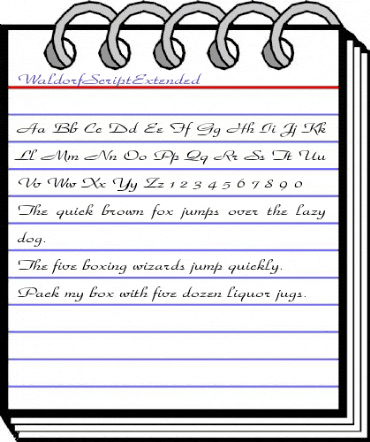 WaldorfScriptExtended
Aa Bb Cc Dd Ee Ff Gg Hh Ii Jj Kk
Ll Mm Nn Oo Pp Qq Rr Ss Tt Uu
Vv Ww Xx Yy Zz 1 2 3 4 5 6 7 8 9 0
The quick brown fox jumps over the lazy
dog.
The five boxing wizards jump quickly.
Pack my box with five dozen liquor jugs.